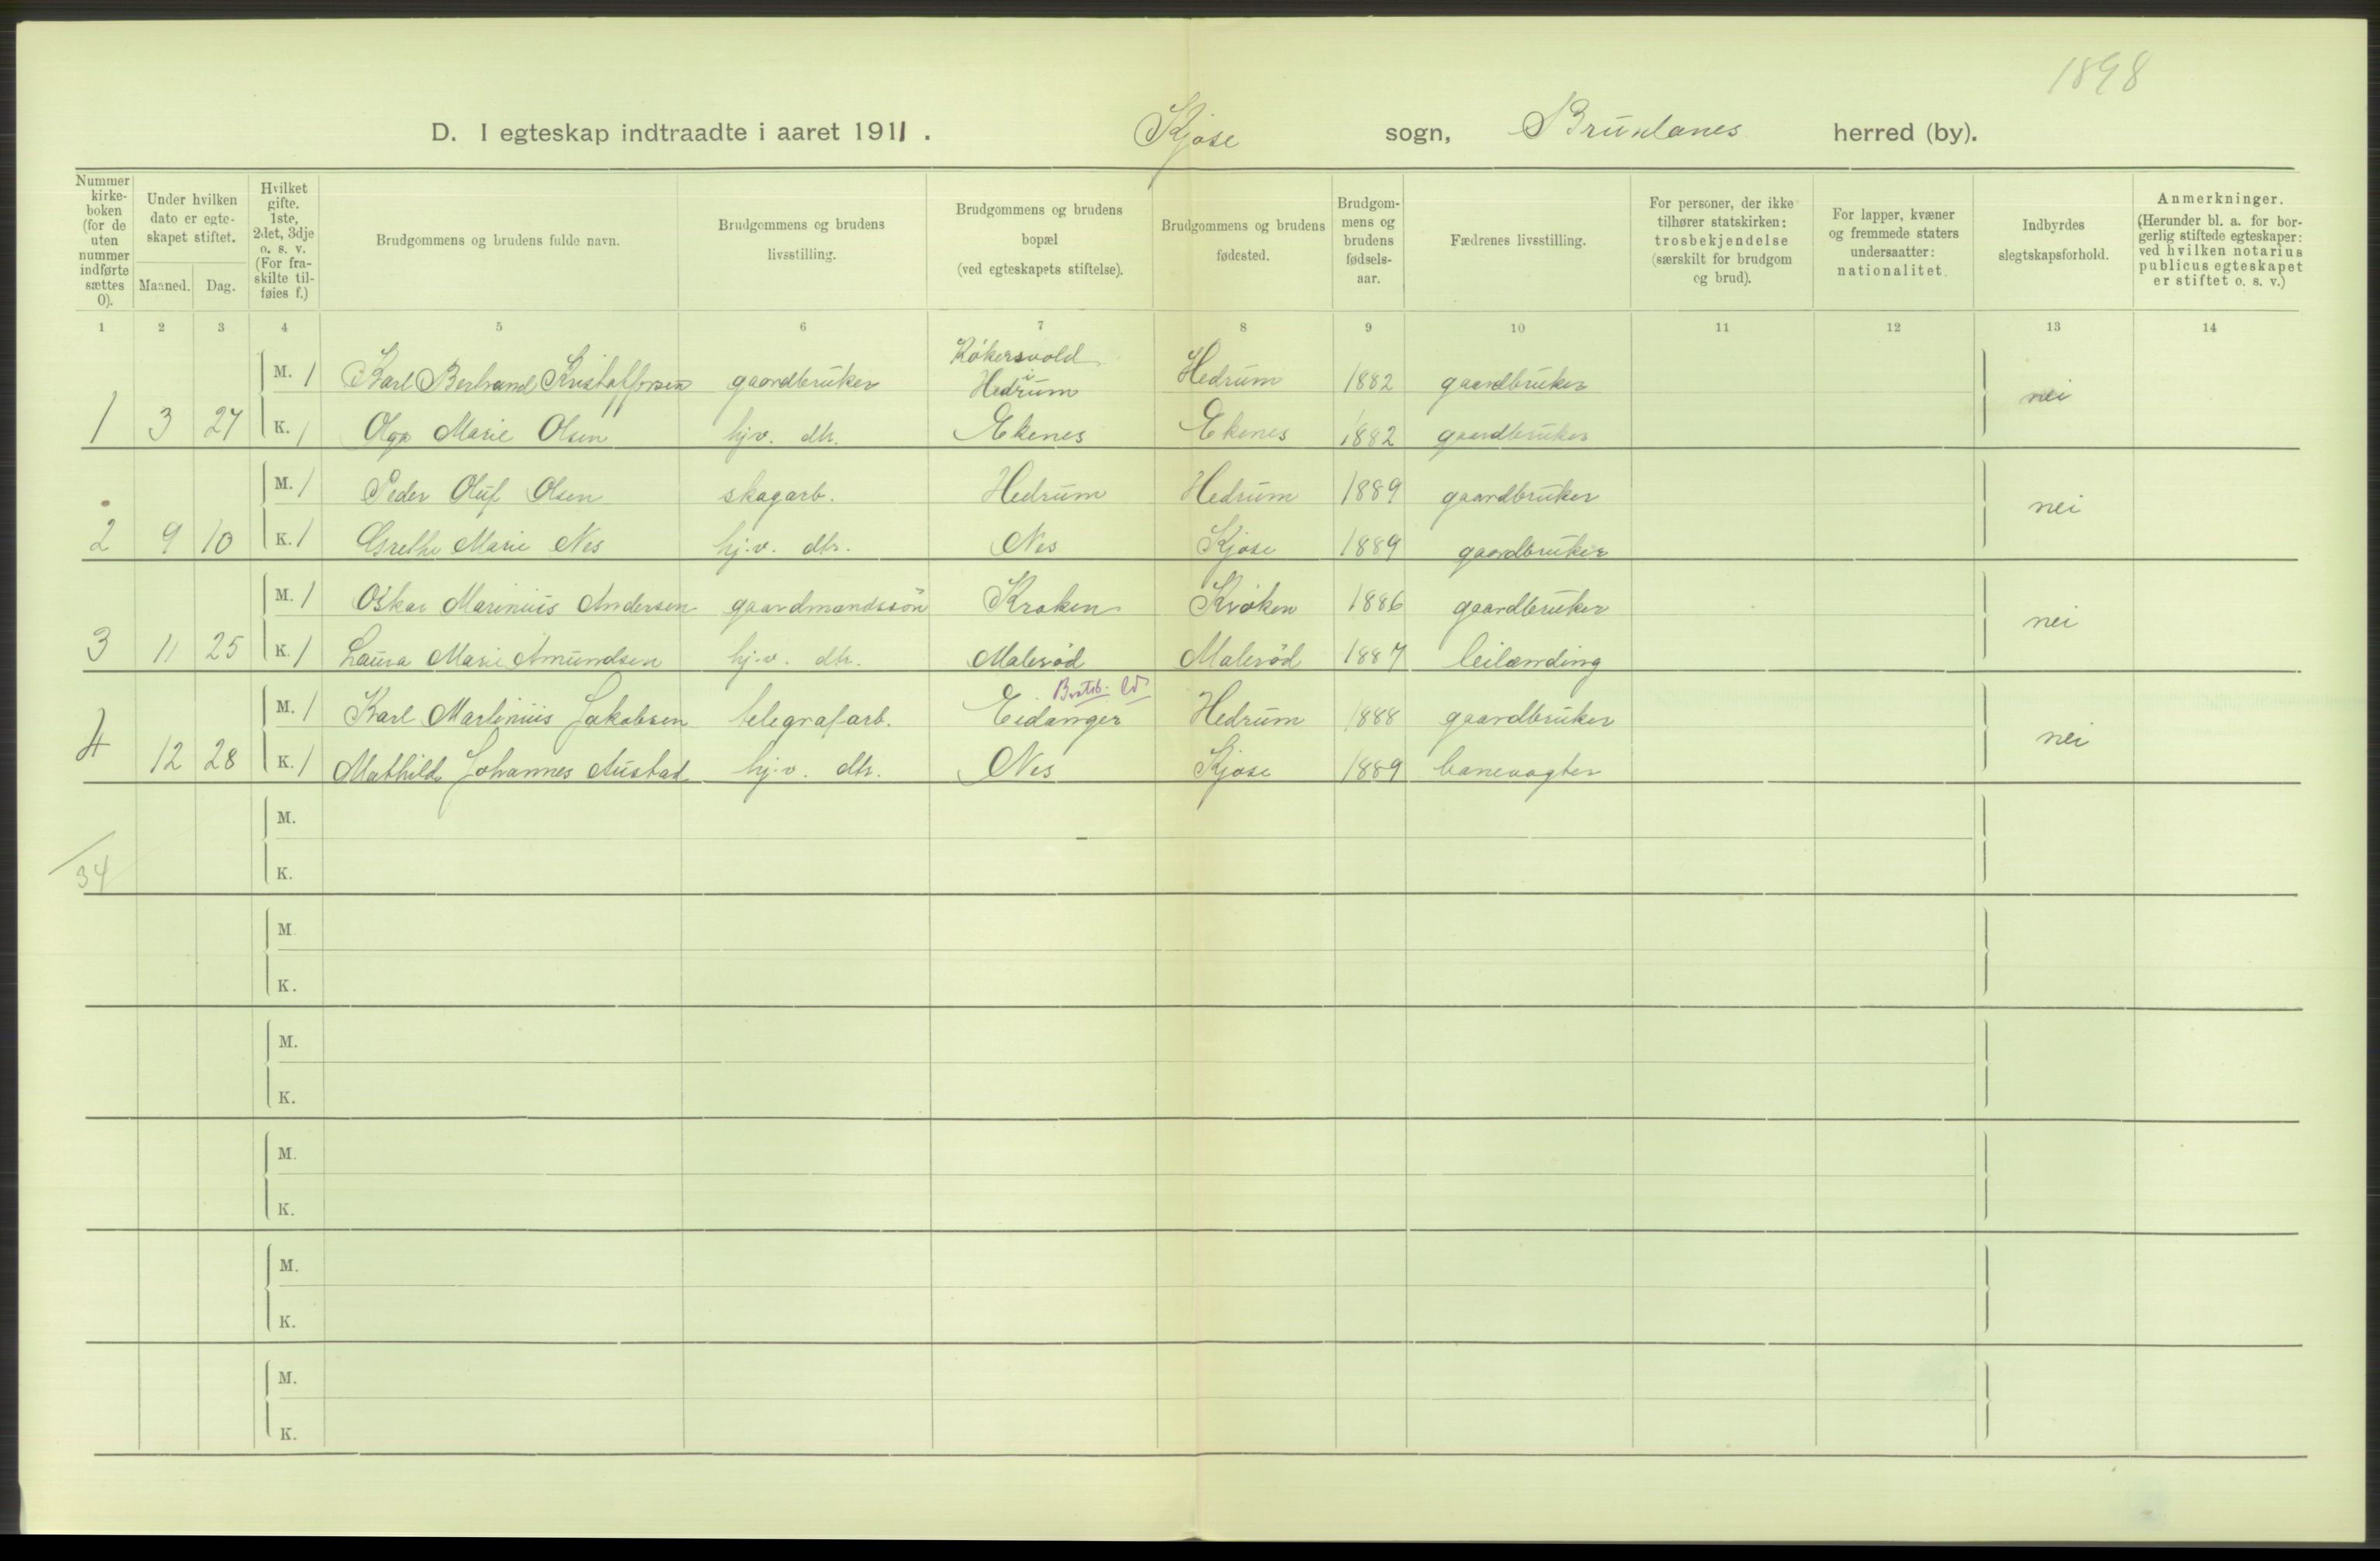 1898
D. I egteskap indtraadte i aaret 1911. Kjose sogn, Brunlanes herred (by).
Nummer kirke-boken (for de uten nummer indførte sættes 0).
Under hvilken dato er egte-skapet stiftet.
Maaned. Dag.
Hvilket gifte. 1ste, 2det, 3dje o. s. v. (For fra-skilte til-føies f.)
Brudgommens og brudens fulde navn.
Brudgommens og brudens livsstilling.
Brudgommens og brudens bopæl (ved egteskapets stiftelse).
Brudgommens og brudens fødested.
Brudgom-mens og brudens fødsels-aar.
Fædrenes livsstilling.
For personer, der ikke tilhører statskirken: trosbekjendelse (særskilt for brudgom og brud).
For lapper, kvæner og fremmede staters undersaatter: nationalitet.
Indbyrdes slegtskapsforhold.
Anmerkninger. (Herunder bl. a. for bor-gerlig stiftede egteskaper: ved hvilken notarius publicus egteskapet er stiftet o. s. v.)
1 2 3 4 5 6 7 8 9 10 11 12 13 14
M. 1 Karl Bertrand Kristoffersen gaardbruker Køkersvold i Hedrum Hedrum 1882 gaardbruker nei
1 3 27 K. 1 Olga Marie Olsen hj.v. dtr. Ekenes Ekenes 1882 gaardbruker
M. 1 Peder Oluf Olsen skogarb. Hedrum Hedrum 1889 gaardbruker nei
2 9 10 K. 1 Grethe Marie Nes hj.v. dtr. Nes Kjose 1889 gaardbruker
M. 1 Oskar Marinius Andersen gaardmandssøn Kroken Kroken 1886 gaardbruker nei
3 11 25 K. 1 Laura Marie Amundsen hj.v. dtr. Malerød Malerød 1887 leilænding
M. 1 Karl Martinius Jakobsen telegrafarb. Eidanger Hedrum 1888 gaardbruker nei
4 12 28 K. 1 Mathilde Johannes Austad hj.v. dtr. Nes Kjose 1889 banevogter
M.
34 K.
M.
K.
M.
K.
M.
K.
M.
K.
M.
K.